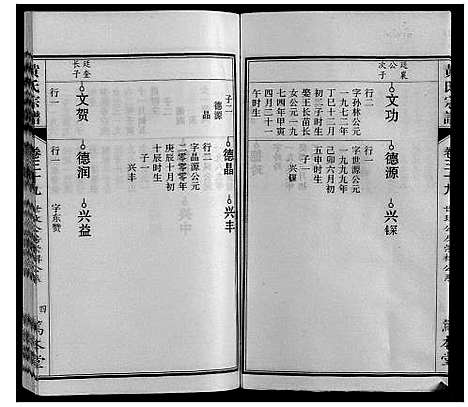 黄氏宗谱
卷三十九
公
次子
文功
行二
字孙林公元
一九七二年
丁巳十二月
初三子时生
娶王长苗长
女公元一九
七四年甲寅
四月三十
午时生
德源
行一
字世源公元
一九九九年
己卯六月初
五申时生
子一
兴镙
兴镙
子二
德源
德晶
德晶
行二
字晶源公元
二零零零年
庚辰十月初
十辰时生
子一
兴丰
兴丰
廷奎
长子
文贺
行一
德润
行一
兴益
字东赞
黄氏宗谱
卷三十九
四
笃本堂